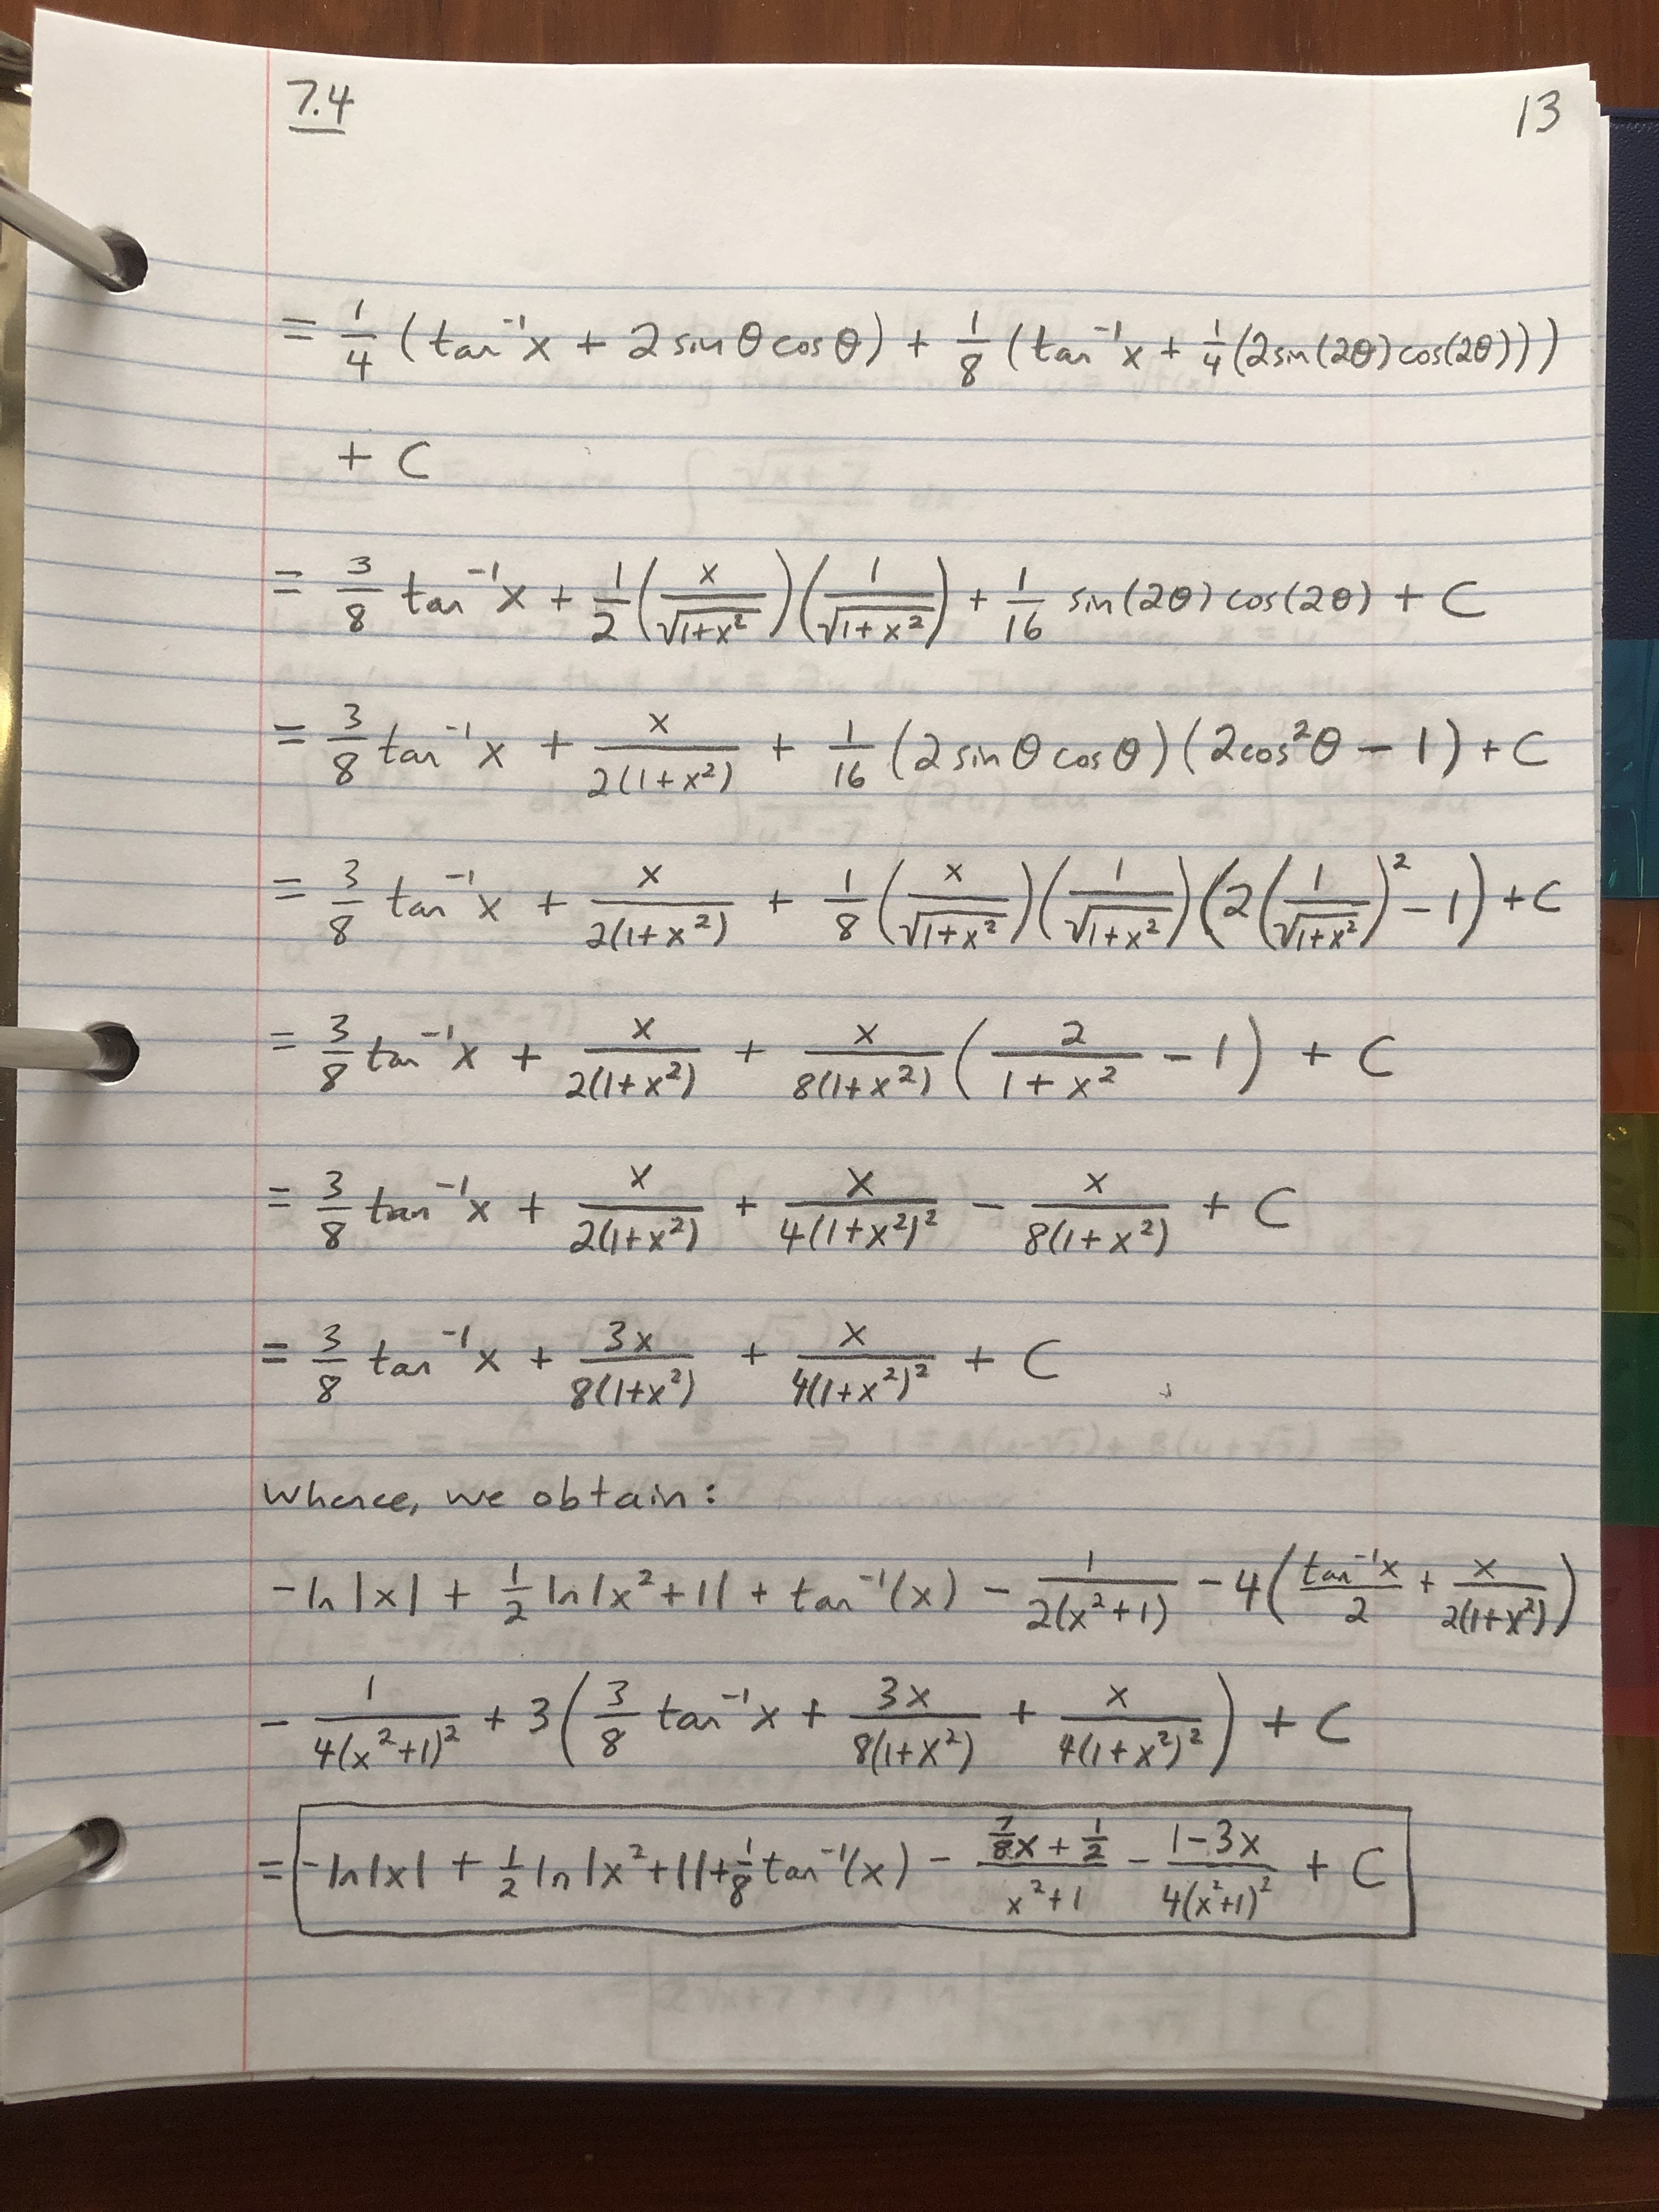 7.4 13
= 1/4 (tan⁻¹x + 2sinθcosθ) + 1/8 (tan⁻¹x + 1/4(2sin(2θ)cos(2θ)))
+ C
= 3/8 tan⁻¹x + 1/2 (x/√(1+x²))(1/√(1+x²)) + 1/16 sin(2θ)cos(2θ) + C
= 3/8 tan⁻¹x + x/(2(1+x²)) + 1/16 (2sinθcosθ)(2cos²θ − 1) + C
= 3/8 tan⁻¹x + x/(2(1+x²)) + 1/8 (x/√(1+x²))(1/√(1+x²))(2(1/√(1+x²))² − 1) + C
= 3/8 tan⁻¹x + x/(2(1+x²)) + x/(8(1+x²)) (2/(1+x²) − 1) + C
= 3/8 tan⁻¹x + x/(2(1+x²)) + x/(4(1+x²)²) − x/(8(1+x²)) + C
= 3/8 tan⁻¹x + 3x/(8(1+x²)) + x/(4(1+x²)²) + C
Whence, we obtain:
−ln|x| + 1/2 ln|x²+1| + tan⁻¹(x) − 1/(2(x²+1)) − 4(tan⁻¹x/2 + x/(2(1+x²)))
− 1/(4(x²+1)²) + 3(3/8 tan⁻¹x + 3x/(8(1+x²)) + x/(4(1+x²)²)) + C
= −ln|x| + 1/2 ln|x²+1| + 1/8 tan⁻¹(x) − (7/8x + 1/2)/(x²+1) − (1−3x)/(4(x²+1)²) + C